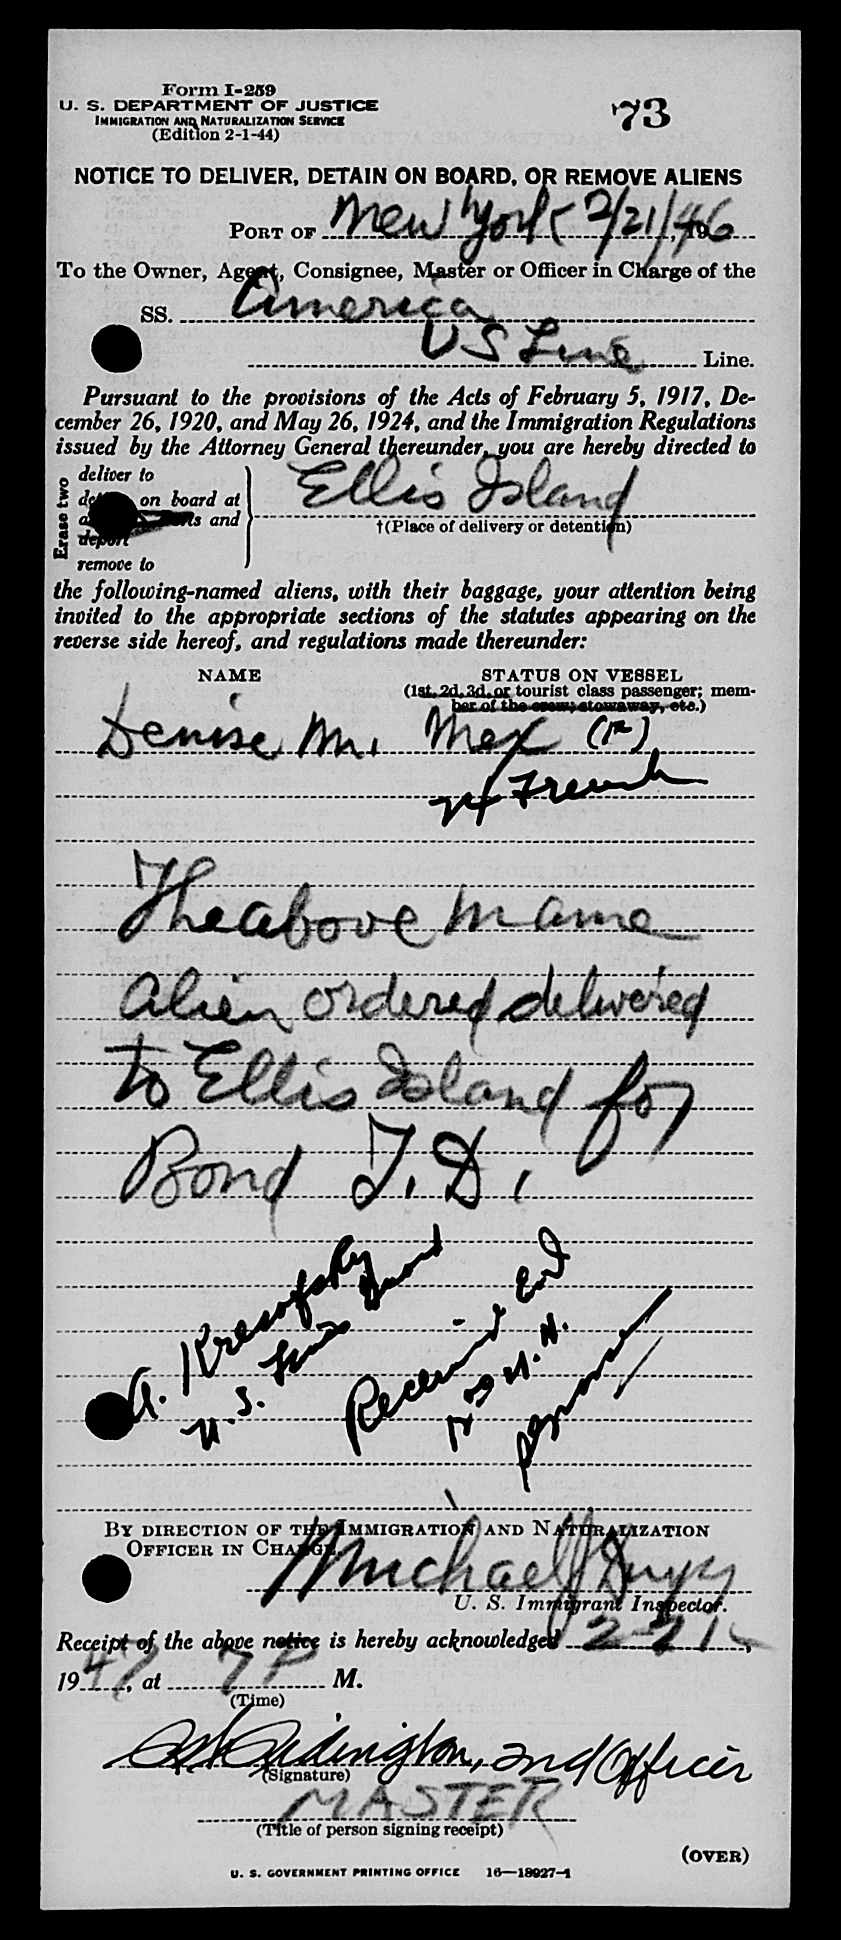 Form I-259
U. S. DEPARTMENT OF JUSTICE
IMMIGRATION AND NATURALIZATION SERVICE
(Edition 2-1-44)
73
NOTICE TO DELIVER, DETAIN ON BOARD, OR REMOVE ALIENS
PORT OF New York 2/21/46
To the Owner, Agent, Consignee, Master or Officer in Charge of the
SS. America
US Line Line.
Pursuant to the provisions of the Acts of February 5, 1917, De-
cember 26, 1920, and May 26, 1924, and the Immigration Regulations
issued by the Attorney General thereunder, you are hereby directed to
Erase two
deliver to
on board at
and
deport
remove to
Ellis Island
†(Place of delivery or detention)
the following-named aliens, with their baggage, your attention being
invited to the appropriate sections of the statutes appearing on the
reverse side hereof, and regulations made thereunder:
NAME STATUS ON VESSEL
(1st, 2d, 3d, or tourist class passenger; mem-
ber of the crew; stowaway, etc.)
Denise M. Mex
French
The above name
alien ordered delivered
to Ellis Island for
Bond T. D.
A. Kresofsky
U. S. Lines Guard
Received
BY DIRECTION OF THE IMMIGRATION AND NATURALIZATION
OFFICER IN CHARGE
Michael J
U. S. Immigrant Inspector.
Receipt of the above notice is hereby acknowledged 2-21,
1947, at 7 P M.
(Time)
2nd Officer
(Signature)
MASTER
(Title of person signing receipt)
(OVER)
U. S. GOVERNMENT PRINTING OFFICE 16—18927-1